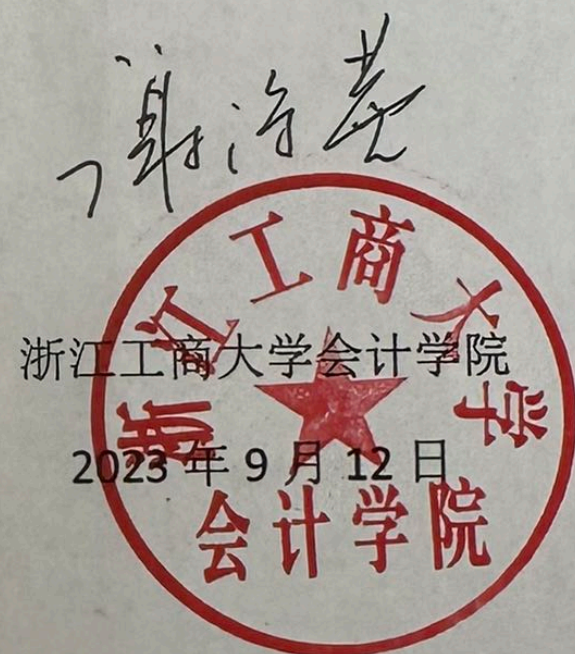 浙江工商大学会计学院
2023 年 9 月 12 日
浙江工商大学
会计学院